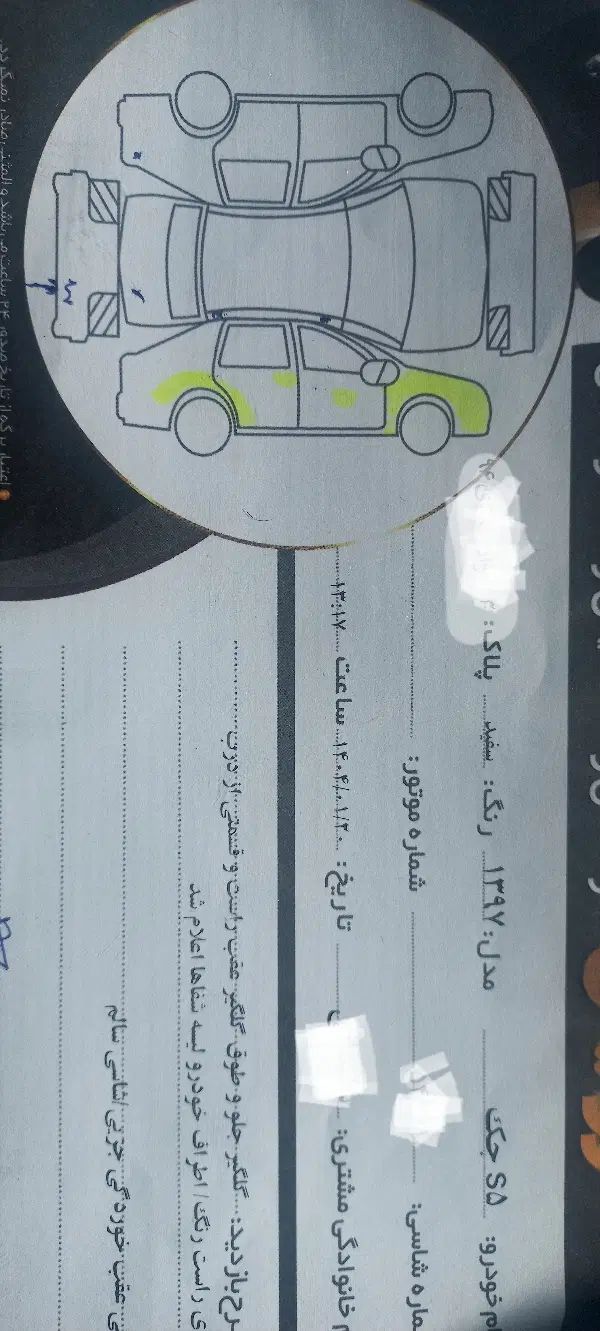 خودرو: S5 جک مدل: ۱۳۹۷ رنگ: سفید پلاک:
شماره شاسی: شماره موتور:
خانوادگی مشتری: تاریخ: ۱۴۰۴/۰۱/۲۰ ساعت ۱۳:۱۷
بازدید: گلگیر جلو و طوق گلگیر عقب راست و قسمتی از درب
ی راست رنگ / اطراف خودرو لیسه شفاها اعلام شد
عقب خوردگی جزیی / شاسی سالم
اعتبار برگه از تاریخ صدور ۲۴ ساعت می باشد و المثنی صادر نمیگردد